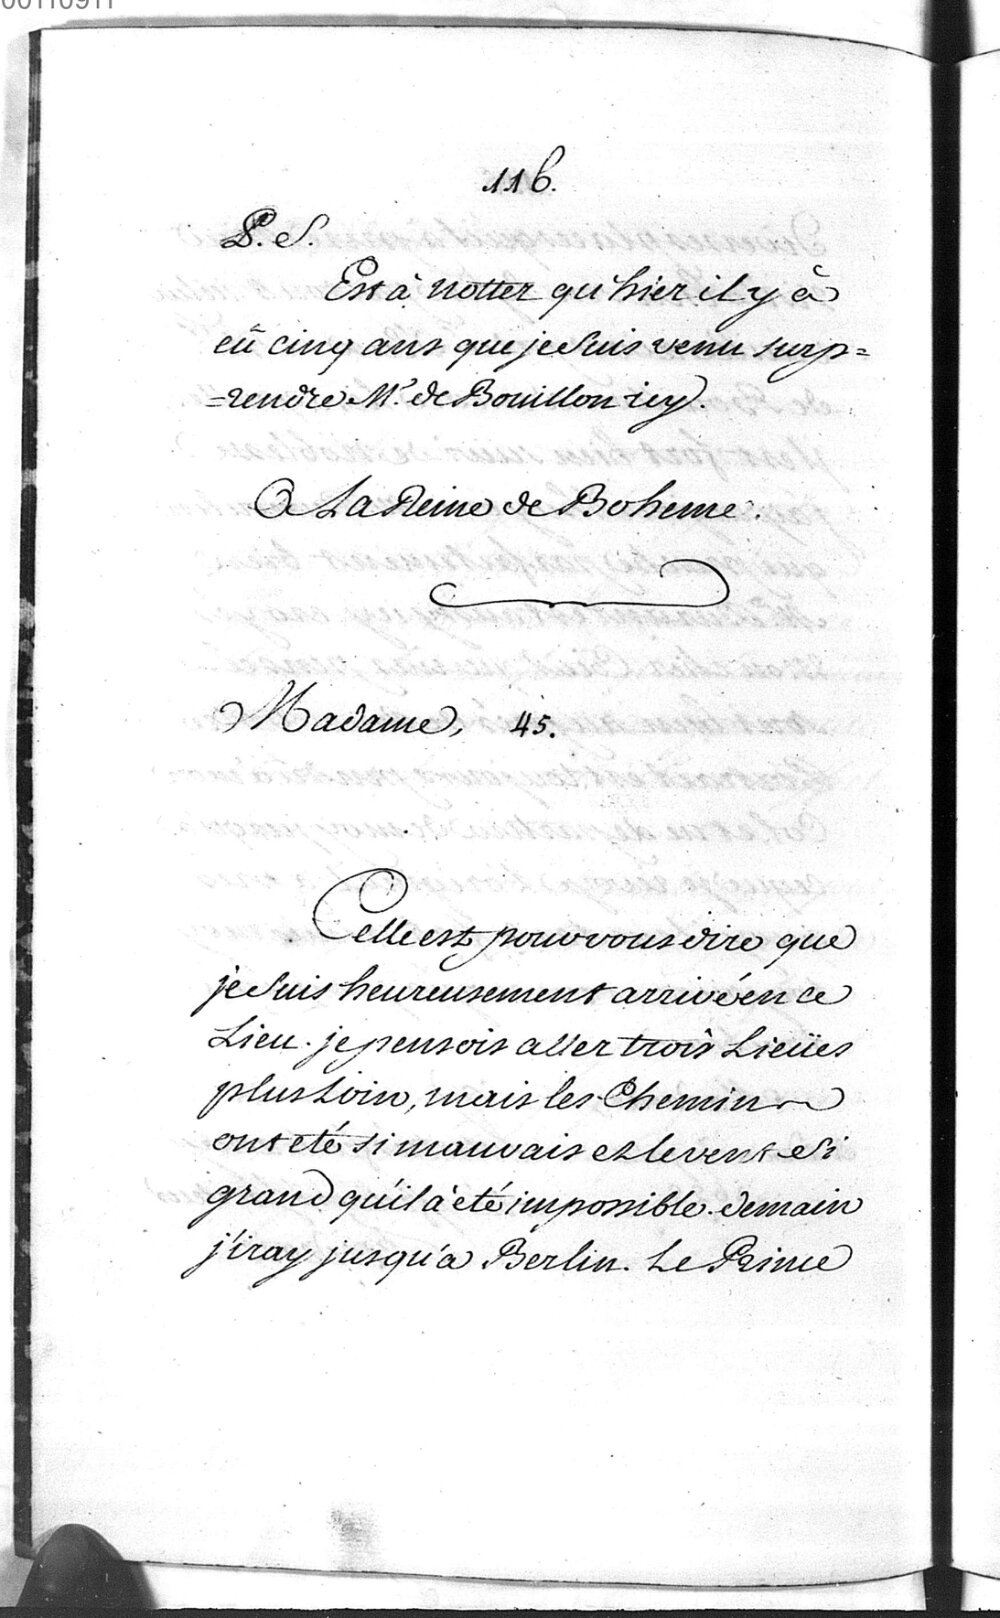 00110911
116.
P. S.
Est à notter qu'hier il y à
eû cinq ans que je suis venu surp=
=rendre Mr. de Bouillon icy.
A La Reine de Boheme.
Madame, 45.
Celle est pour vous dire que
je suis heureusement arrivé en ce
Lieu. je pensois aller trois Lieües
plus Loin, mais les Chemins
ont eté si mauvais et le vent si
grand qu'il à eté impossible. demain
j'iray jusqu'a Berlin. Le Prince